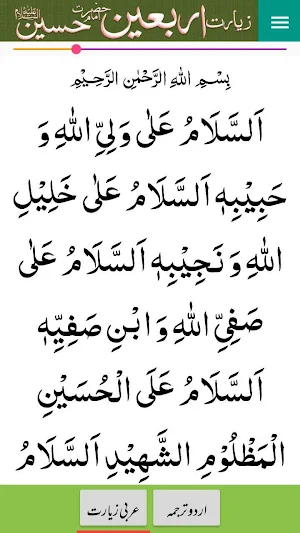 زیارت اربعین حضرت امام حسین
بِسْمِ اللهِ الرَّحْمٰنِ الرَّحِيْمِ
اَلسَّلَامُ عَلٰى وَلِيِّ اللهِ وَ
حَبِيْبِهٖ اَلسَّلَامُ عَلٰى خَلِيْلِ
اللهِ وَ نَجِيْبِهٖ اَلسَّلَامُ عَلٰى
صَفِيِّ اللهِ وَ ابْنِ صَفِيِّهٖ
اَلسَّلَامُ عَلَى الْحُسَيْنِ
الْمَظْلُوْمِ الشَّهِيْدِ اَلسَّلَامُ
اردو ترجمہ
عربی زیارت